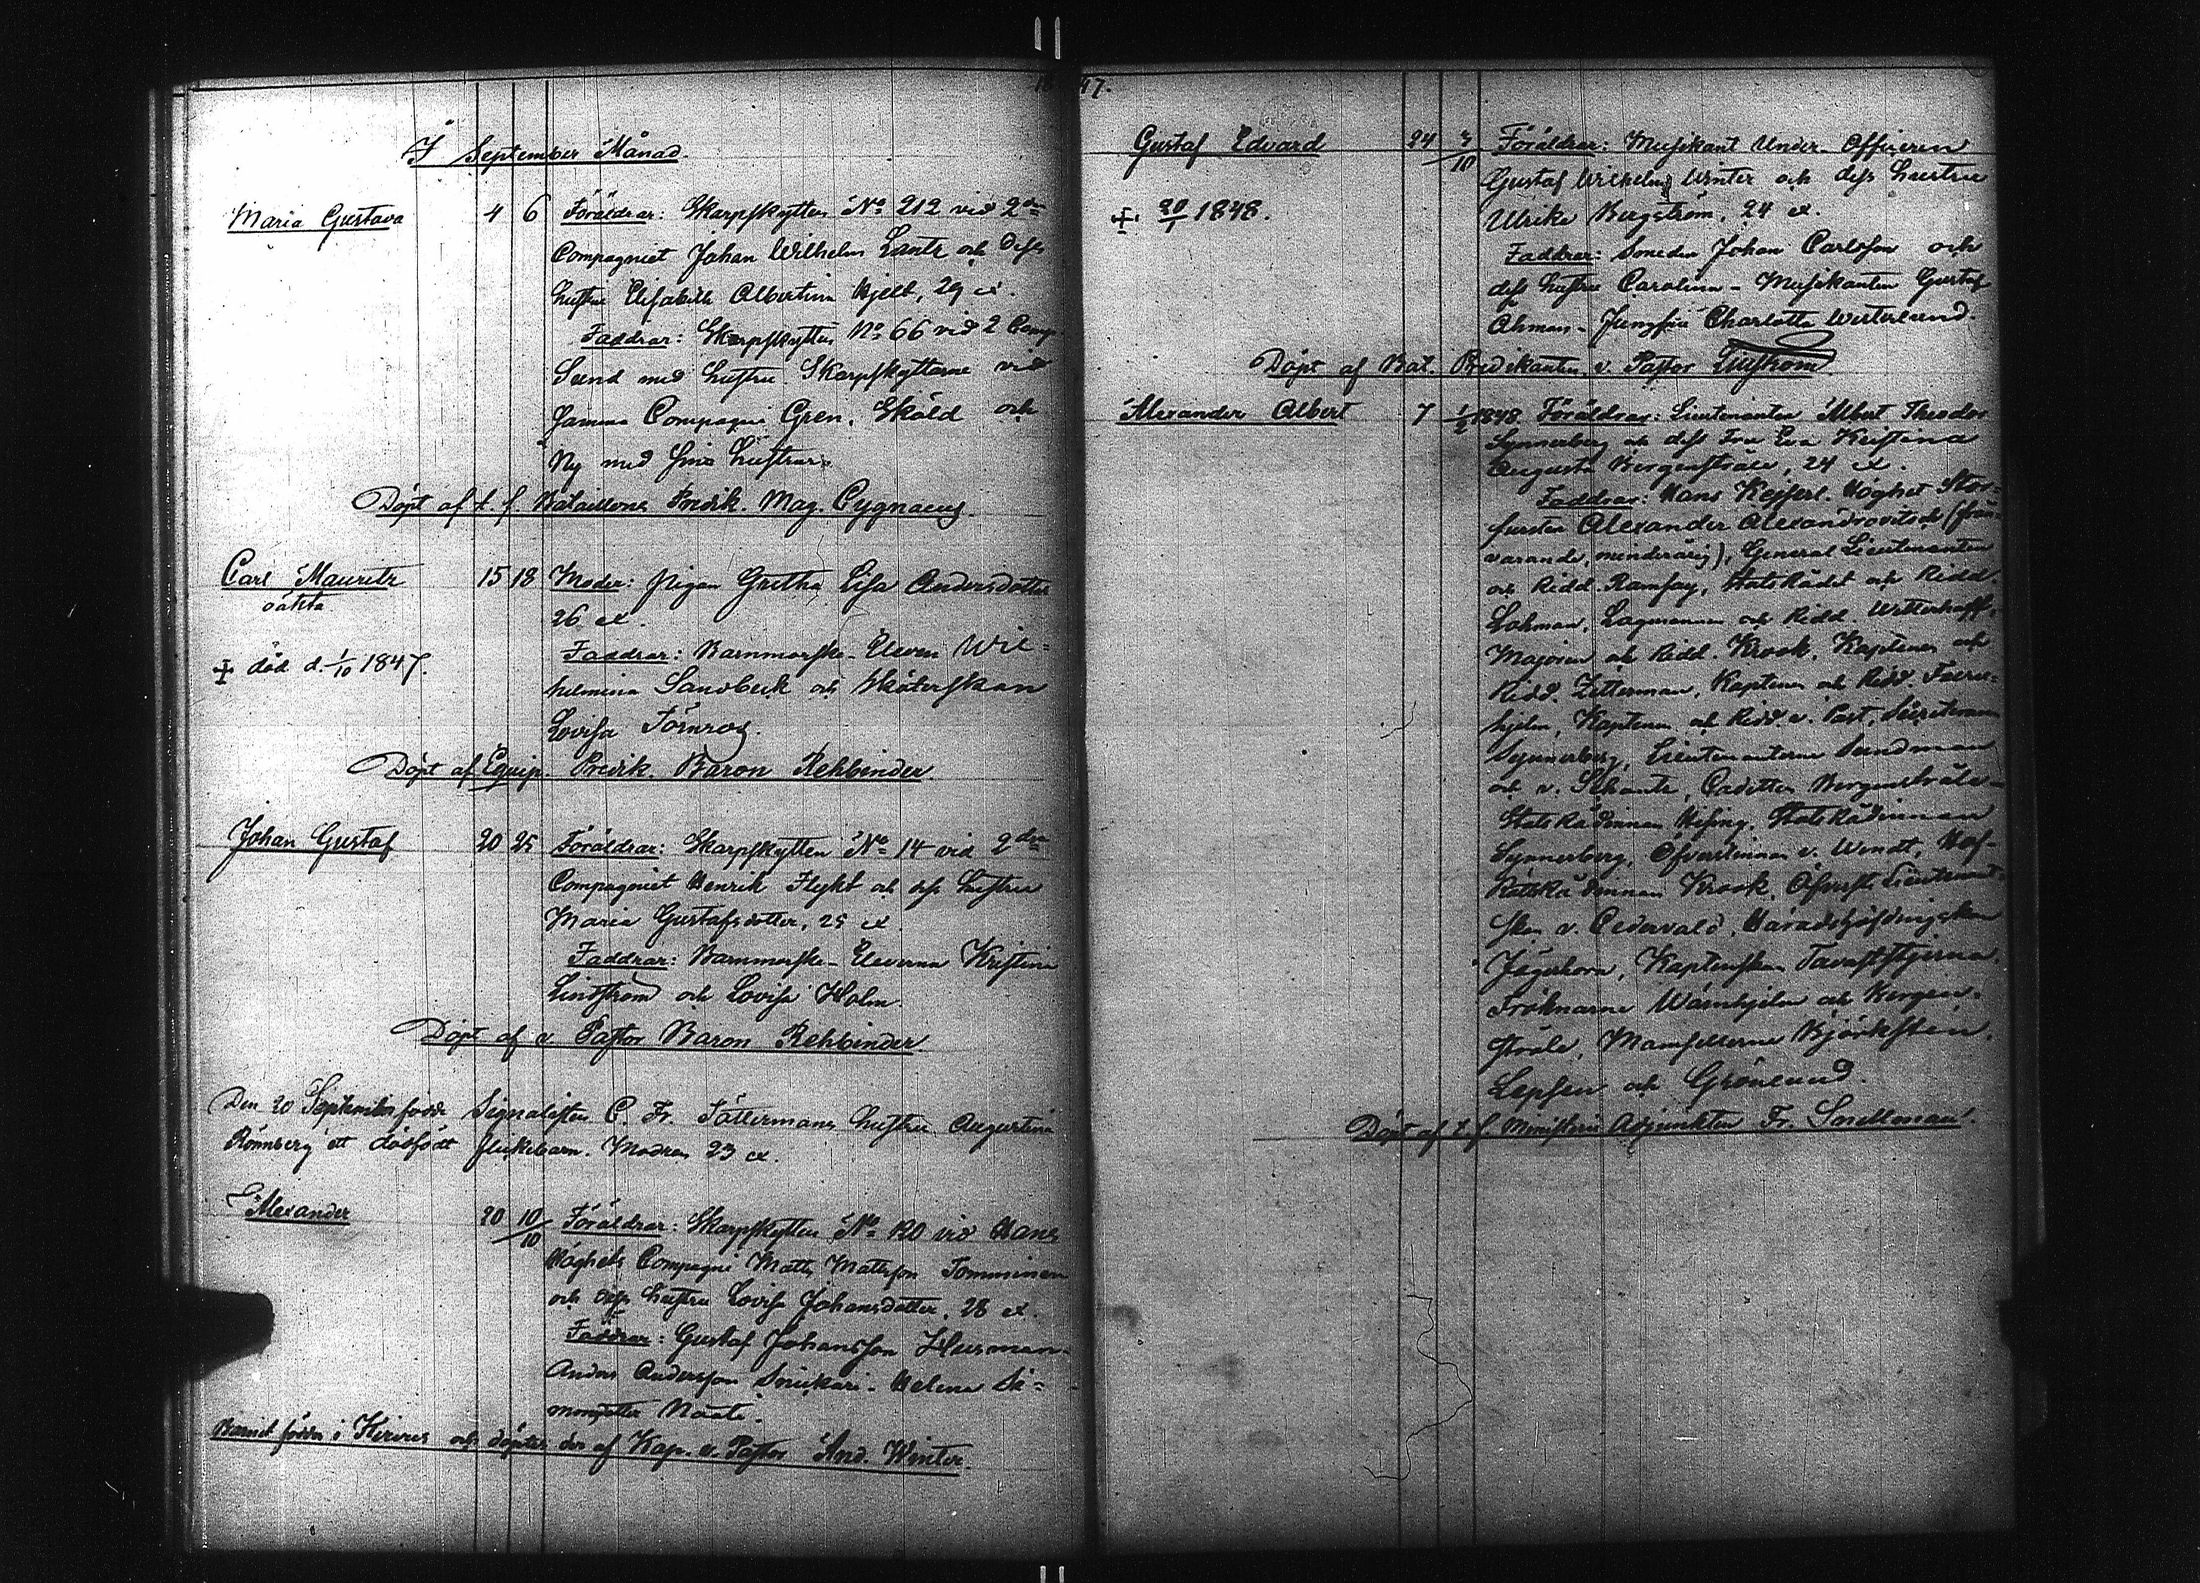 1847.
I September Månad.
Maria Gustava 4 6 Föräldrar: Skarpskytten No 212 vid 2dra
Compagniet Johan Wilhelm Lantz och dess
hustru Elisabeth Albertina Hjelt, 29 år.
Faddrar: Skarpskytten No 66 vid 2 Comp.
Sund med hustru. Skarpskyttarne vid
samma Compagni Gren, Sköld och
Ny med sina hustrur.
Döpt af t. f. Bataillons Predik. Mag. Cygnaeus.
Carl Mauritz 15 18 Moder: pigan Gretha Lisa Andersdotter
oäkta 26 år.
Faddrar: Barnmorske-Eleven Wil=
+ död d. 1/10 1847. helmina Sandbeck och Sköterskan
Lovisa Törnros.
Döpt af Equip. Predik. Baron Rehbinder
Johan Gustaf 20 25 Föräldrar: Skarpskytten No 14 vid 2dra
Compagniet Henrik Flykt och dess hustru
Maria Gustafsdotter, 25 år.
Faddrar: Barnmorske-Eleverna Kristina
Lindström och Lovisa Holm.
Döpt af v. Pastor Baron Rehbinder.
Den 20 September födde Signalisten C. Fr. Sättermans hustru Augustina
Rönnberg ett dödfödt flickebarn. Modren 23 år.
Alexander 20 10/10 Föräldrar: Skarpskytten No 120 vid Hans
Höghets Compagni Matts Mattsson Tomminen
och dess hustru Lovisa Johansdotter, 28 år.
Faddrar: Gustaf Johansson Husman-
Anders Andersson Snickari- Helena Si=
monsdotter
Barnet födt i och döptes der af Kap. v. Pastor And. Winter.
Gustaf Edvard 24 3/10 Föräldrar: Musikant Under-Officeren
Gustaf Wilhelm Winter och dess hustru
+. 20/1 1848. Ulrika Bergström, 24 år.
Faddrar: Smeden Johan Carlsson och
dess hustru Carolina- Musikanten Gustaf
Åhman- Jungfru Charlotta Westerlund.
Döpt af Bat. Predikanten v. Pastor
Alexander Albert 7 1/2 1848. Föräldrar: Lieutenanten Albert Theodor
Synnerberg och dess Fru Eva Kristina
Augusta Bergenstråle, 24 år.
Faddrar: Hans Kejserl. Höghet Stor-
fursten Alexander Alexandrovitsch (från-
varande, minderårig), General Lieutenanten
och Ridd. Ramsay, Statsrådet och Ridd.
Lohman, Lagmannen och Ridd. Wetterhoff,
Majoren och Ridd. Krook, Kaptenen och
Ridd. Zitterman, Kaptenen och Ridd.
Kaptenen och Ridd. v. Post, Lieutenan
Synnerberg, Lieutenanterne Sundman
och v. Schantz, Cadetten Bergenstråle-
Statsrådinnan Hising, Statsrådinnan
Synnerberg, Öfverstinnan v. Wendt, Hof-
Rättsrådinnan Krook, Öfverste Lieutenant-
skan v. Cedervald, Häradshöfdingskan
Jägerhorn, Kaptenskan Tavaststjerna,
Fröknarne Wärnhjelm och Bergen-
stråle, Mamsellerne Björksten,
Lepsen och Grönlund.
Döpt af t. f. Ministerii Adjunkten Fr. Smedman.